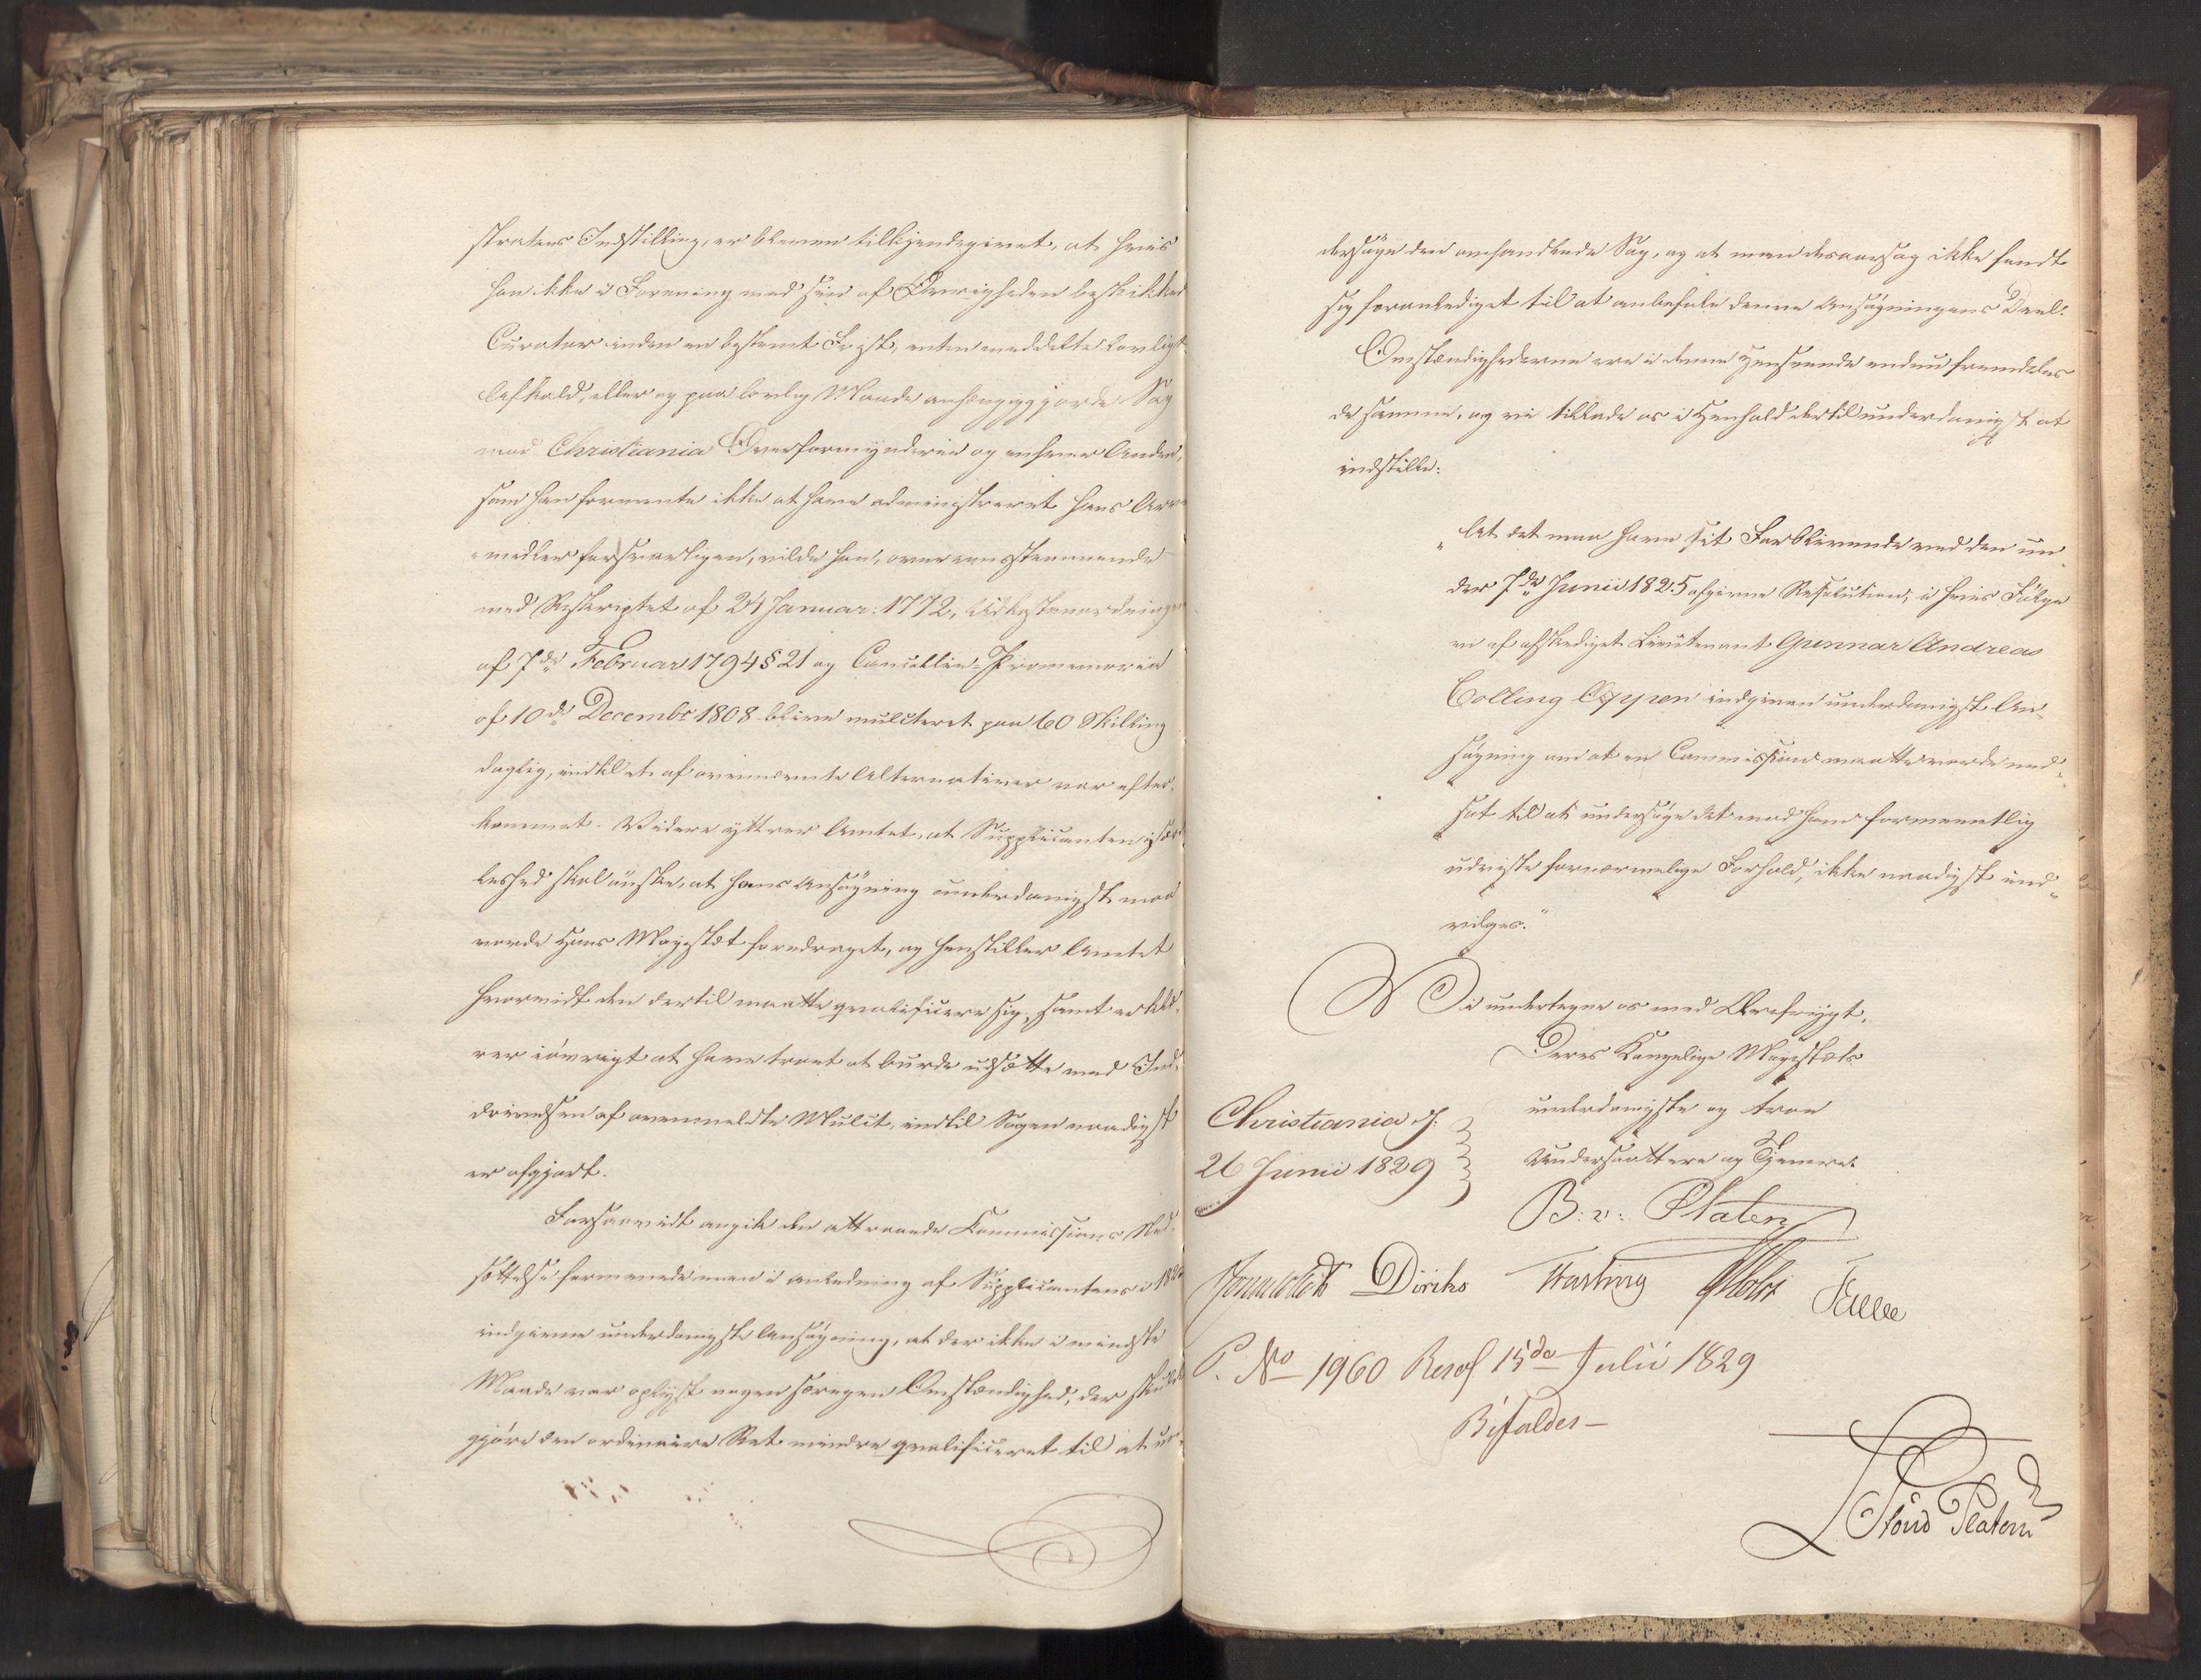 stratens Indstilling, er bleven tilkjendegivet, at hvis
han ikke i Forening med sin af Øvrigheden beskikked
Curator inden en bestemt Frist, enten meddelte lovligt
Afkald, eller og paa lovlig Maade anhængiggjorde Sag
mod Christiania Overformynderie og enhver Anden,
som han formeente ikke at have administreret hans Arve
midler forsvarligen, vilde han, overeensstemmende
med Reskriptet af 24 Januar: 1772, Udkastanordningen
af 7de Februar 1794 § 21 og Cancellie-Promemoria
af 10de Decembr 1808 blive mulcteret paa 60 Skilling
daglig, indtil et af ovennævnte Alternativer var efter-
kommet. Videre yttrer Amtet, at Supplicanten
skal ønske, at hans Ansøgning underdanigst maa
vorde Hans Majestæt foredraget, og henstiller Amtet
hvorvidt den dertil maatte qvalificere sig, samt erklæ-
rer iøvrigt at have troet at burde udsætte med Ind-
drivelsen af ovenmeldte Mulct, indtil Sagen naadigst
er afgjort.
Forsaavidt angik den attraaede Commissions Ned-
sættelse formeenede man i Anledning af Supplicantens i 182
indgivne underdanigste Ansøgning, at der ikke i mindste
Maade var oplyst nogen særegen Omstændighed, der skulde
gjøre den ordinaire Ret mindre qvalificeret til at un-
dersøge den omhandlede Sag, og at man desaarsag ikke fandt
sig foranlediget til at anbefale denne Ansøgningens Deel.
Omstændighederne ere i denne Henseende endnu fremdeles
de samme, og vi tillade os i Henhold dertil underdanigst at
indstille:
"At det maa have sit Forblivende ved den un-
der 7de Junii 1825 afgivne Resolution, i hvis Følge
en af afskediget Lieutenant Gunnar Andreas
Colling Oppen indgiven underdanigst An-
søgning om at en Commission maatte vorde ned-
sat til at undersøge det mod ham formeentlig
udviste fornærmelige Forhold, ikke naadigst ind-
vilges."
Vi undertegne os med Ærefrygt,
Deres Kongelige Majestæts
underdanigste og troe
Undersaattere og Tjenere.
Christiania d.
26 Junii 1829
B: v: Platen
Diriks Fasting
P. No 1960 Resol 15de Julii 1829
Bifaldes –
Platen